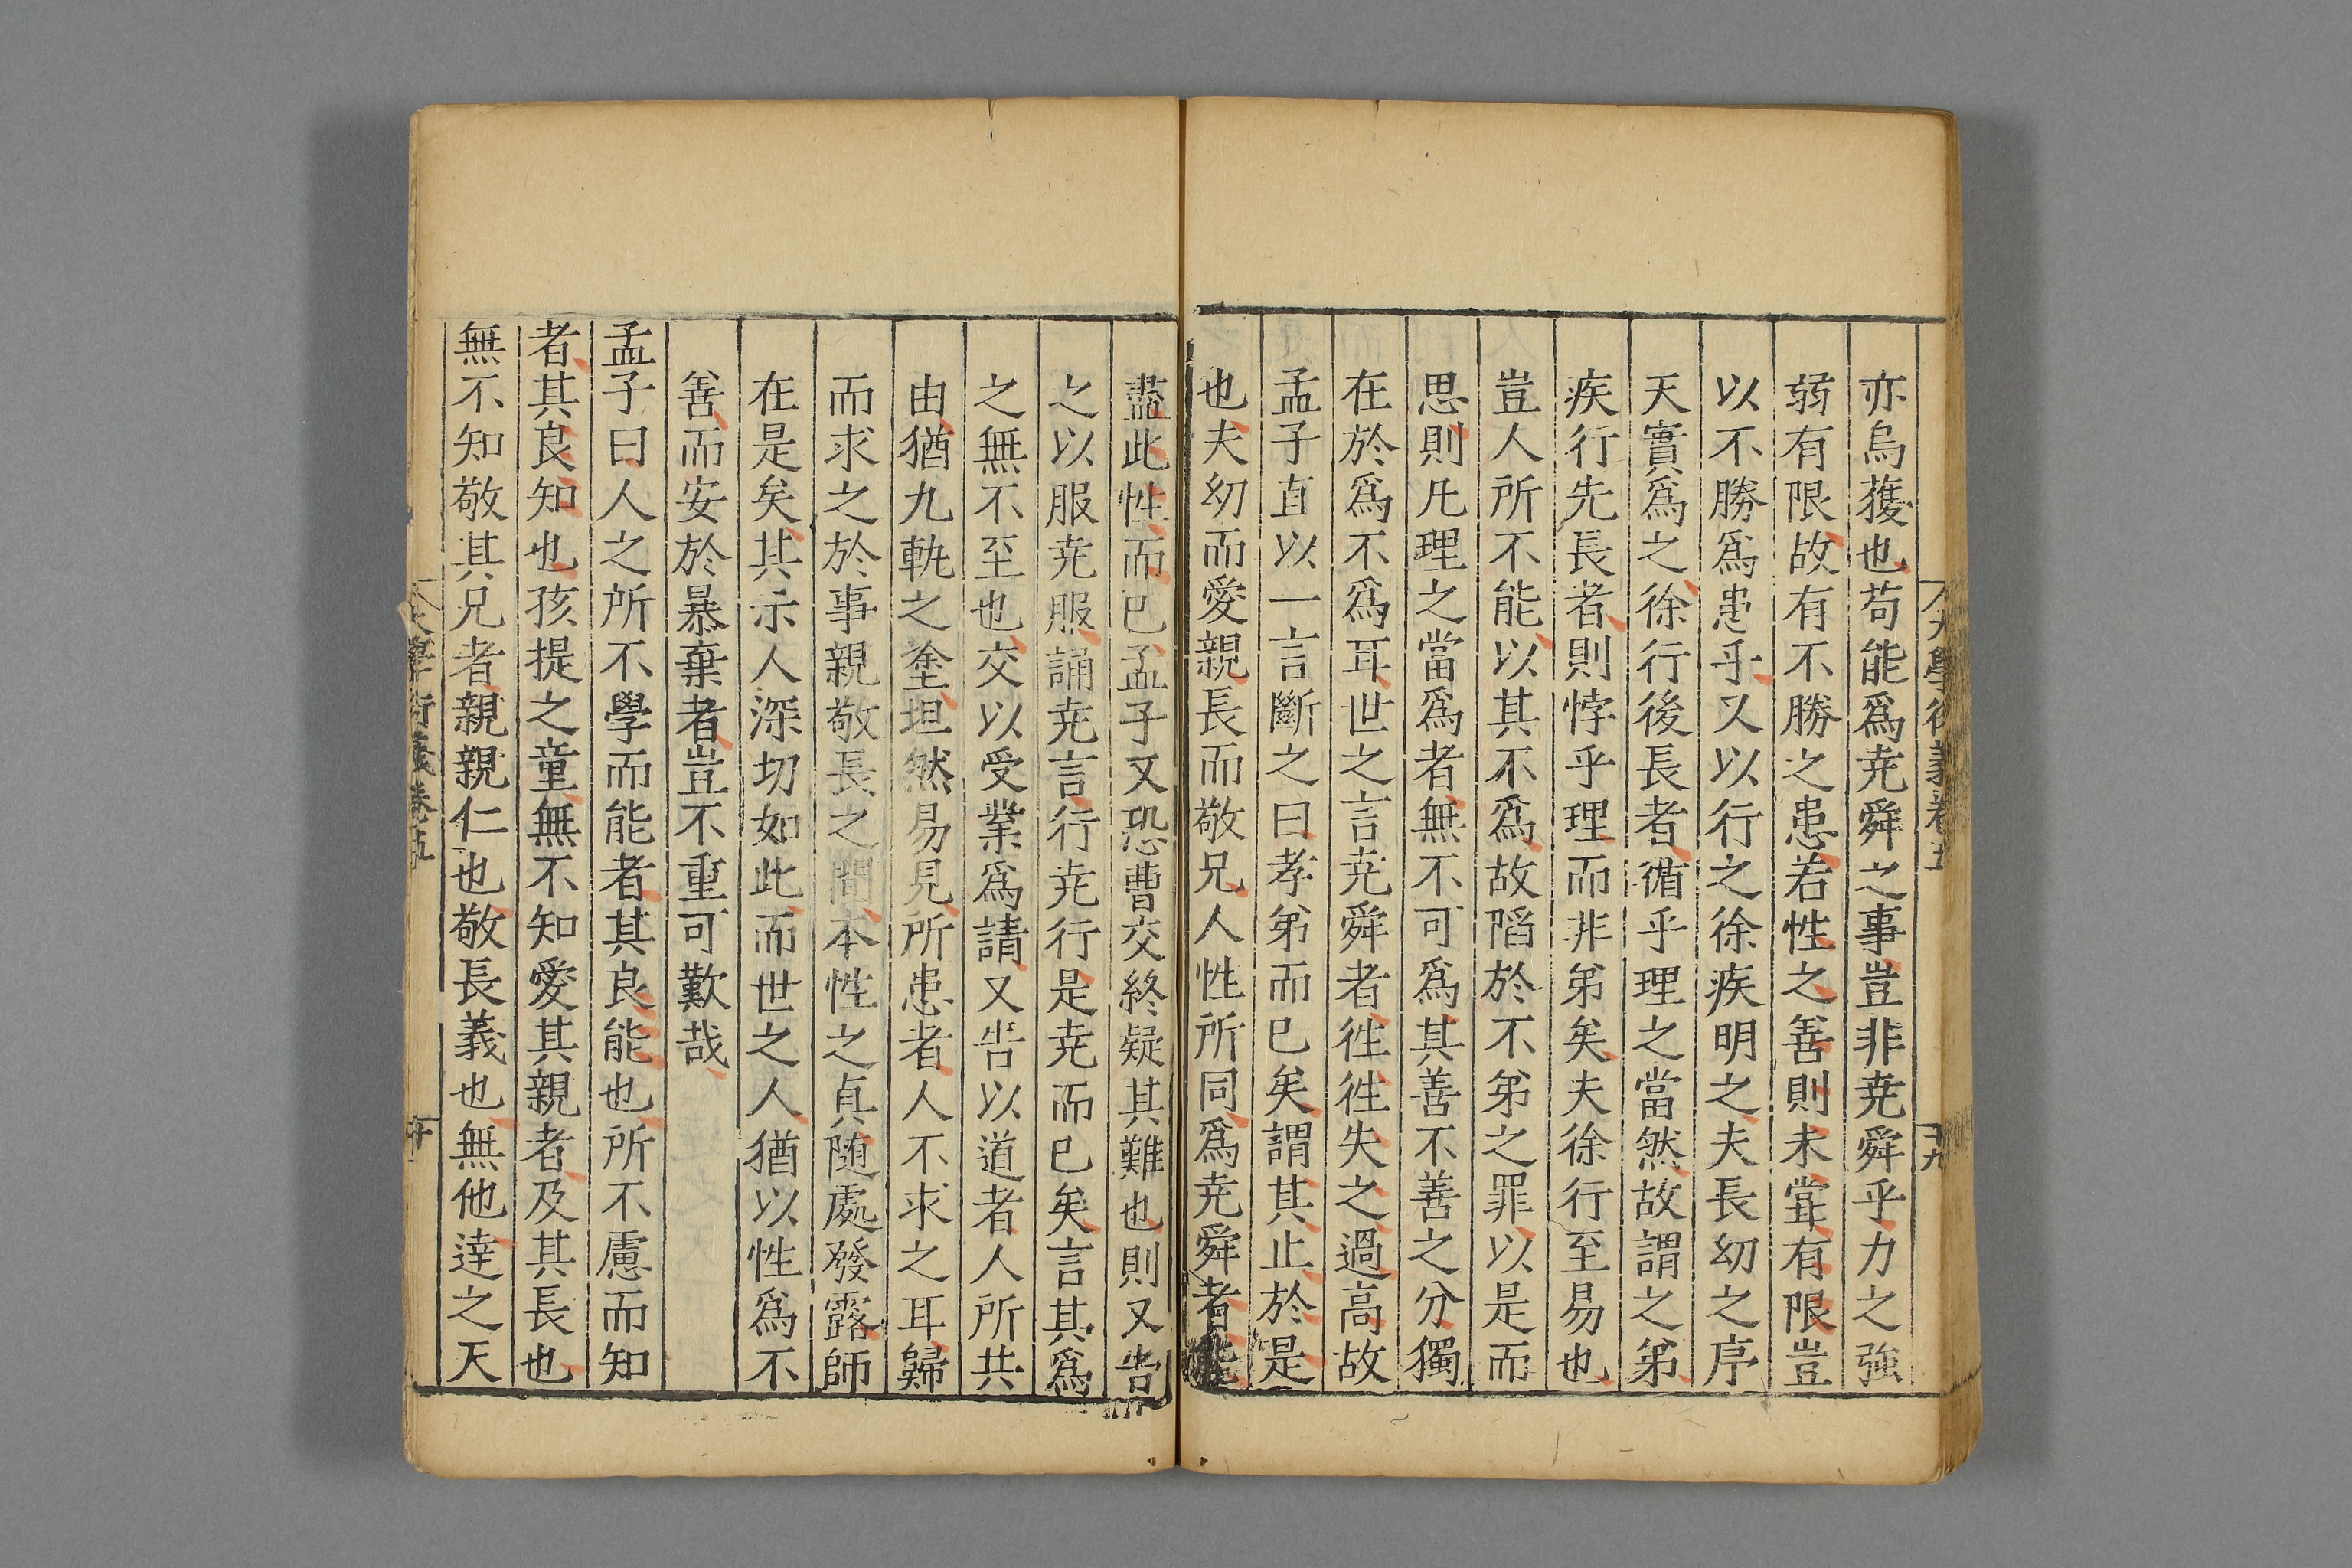 大學衍義卷五
十九
亦烏獲也苟能爲尭舜之事豈非尭舜乎力之強
弱有限故有不勝之患若性之善則未甞有限豈
以不勝爲患乎又以行之徐疾明之夫長幼之序
天實爲之徐行後長者循乎理之當然故謂之弟
疾行先長者則悖乎理而非弟矣夫徐行至易也
豈人所不能以其不爲故陷於不弟之罪以是而
思則凡理之當爲者無不可爲其善不善之分獨
在於爲不爲耳世之言尭舜者徃徃失之過高故
孟子直以一言斷之曰孝弟而已矣謂其止於是
也夫幼而愛親長而敬兄人性所同爲尭舜者能
盡此性而已孟子又恐曹交終疑其難也則又告
之以服尭服誦尭言行尭行是尭而已矣言其爲
之無不至也交以受業爲請又告以道者人所共
由猶九軌之塗坦然易見所患者人不求之耳歸
而求之於事親敬長之間本性之眞随處發露師
在是矣其示人深切如此而世之人猶以性爲不
善而安於暴棄者豈不重可歎哉
孟子曰人之所不學而能者其良能也所不慮而知
者其良知也孩提之童無不知愛其親者及其長也
無不知敬其兄者親親仁也敬長義也無他達之天
大學衍義卷五